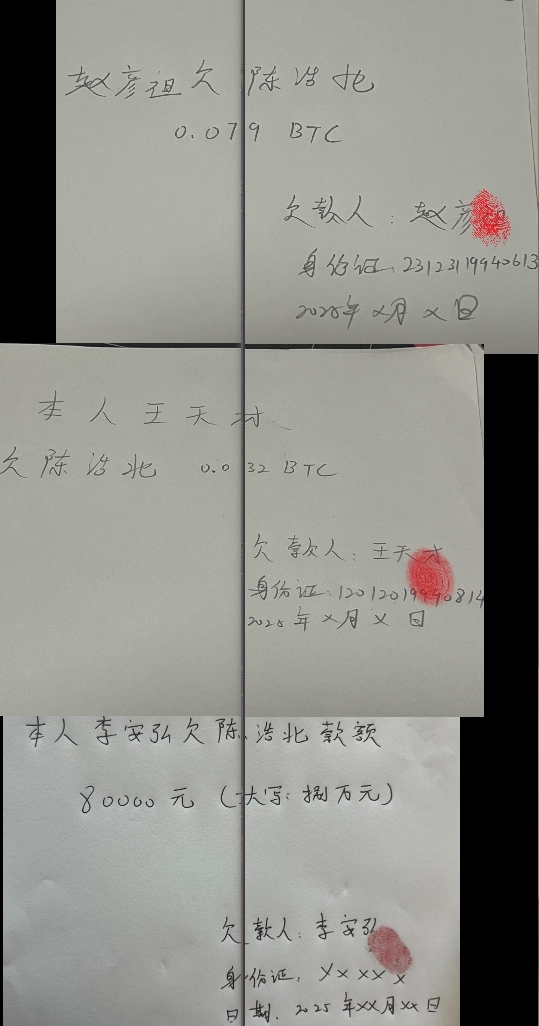 赵彦祖欠陈浩北
0.079 BTC
欠款人：赵彦
身份证：23123119940613
2025年×月×日
本人王天才
欠陈浩北 0.032 BTC
欠款人：王天才
身份证：12012019940814
2025年×月×日
本人李安弘欠陈浩北款额
80000元（大写：捌万元）
欠款人：李安弘
身份证：×××××
日期：2025年××月××日